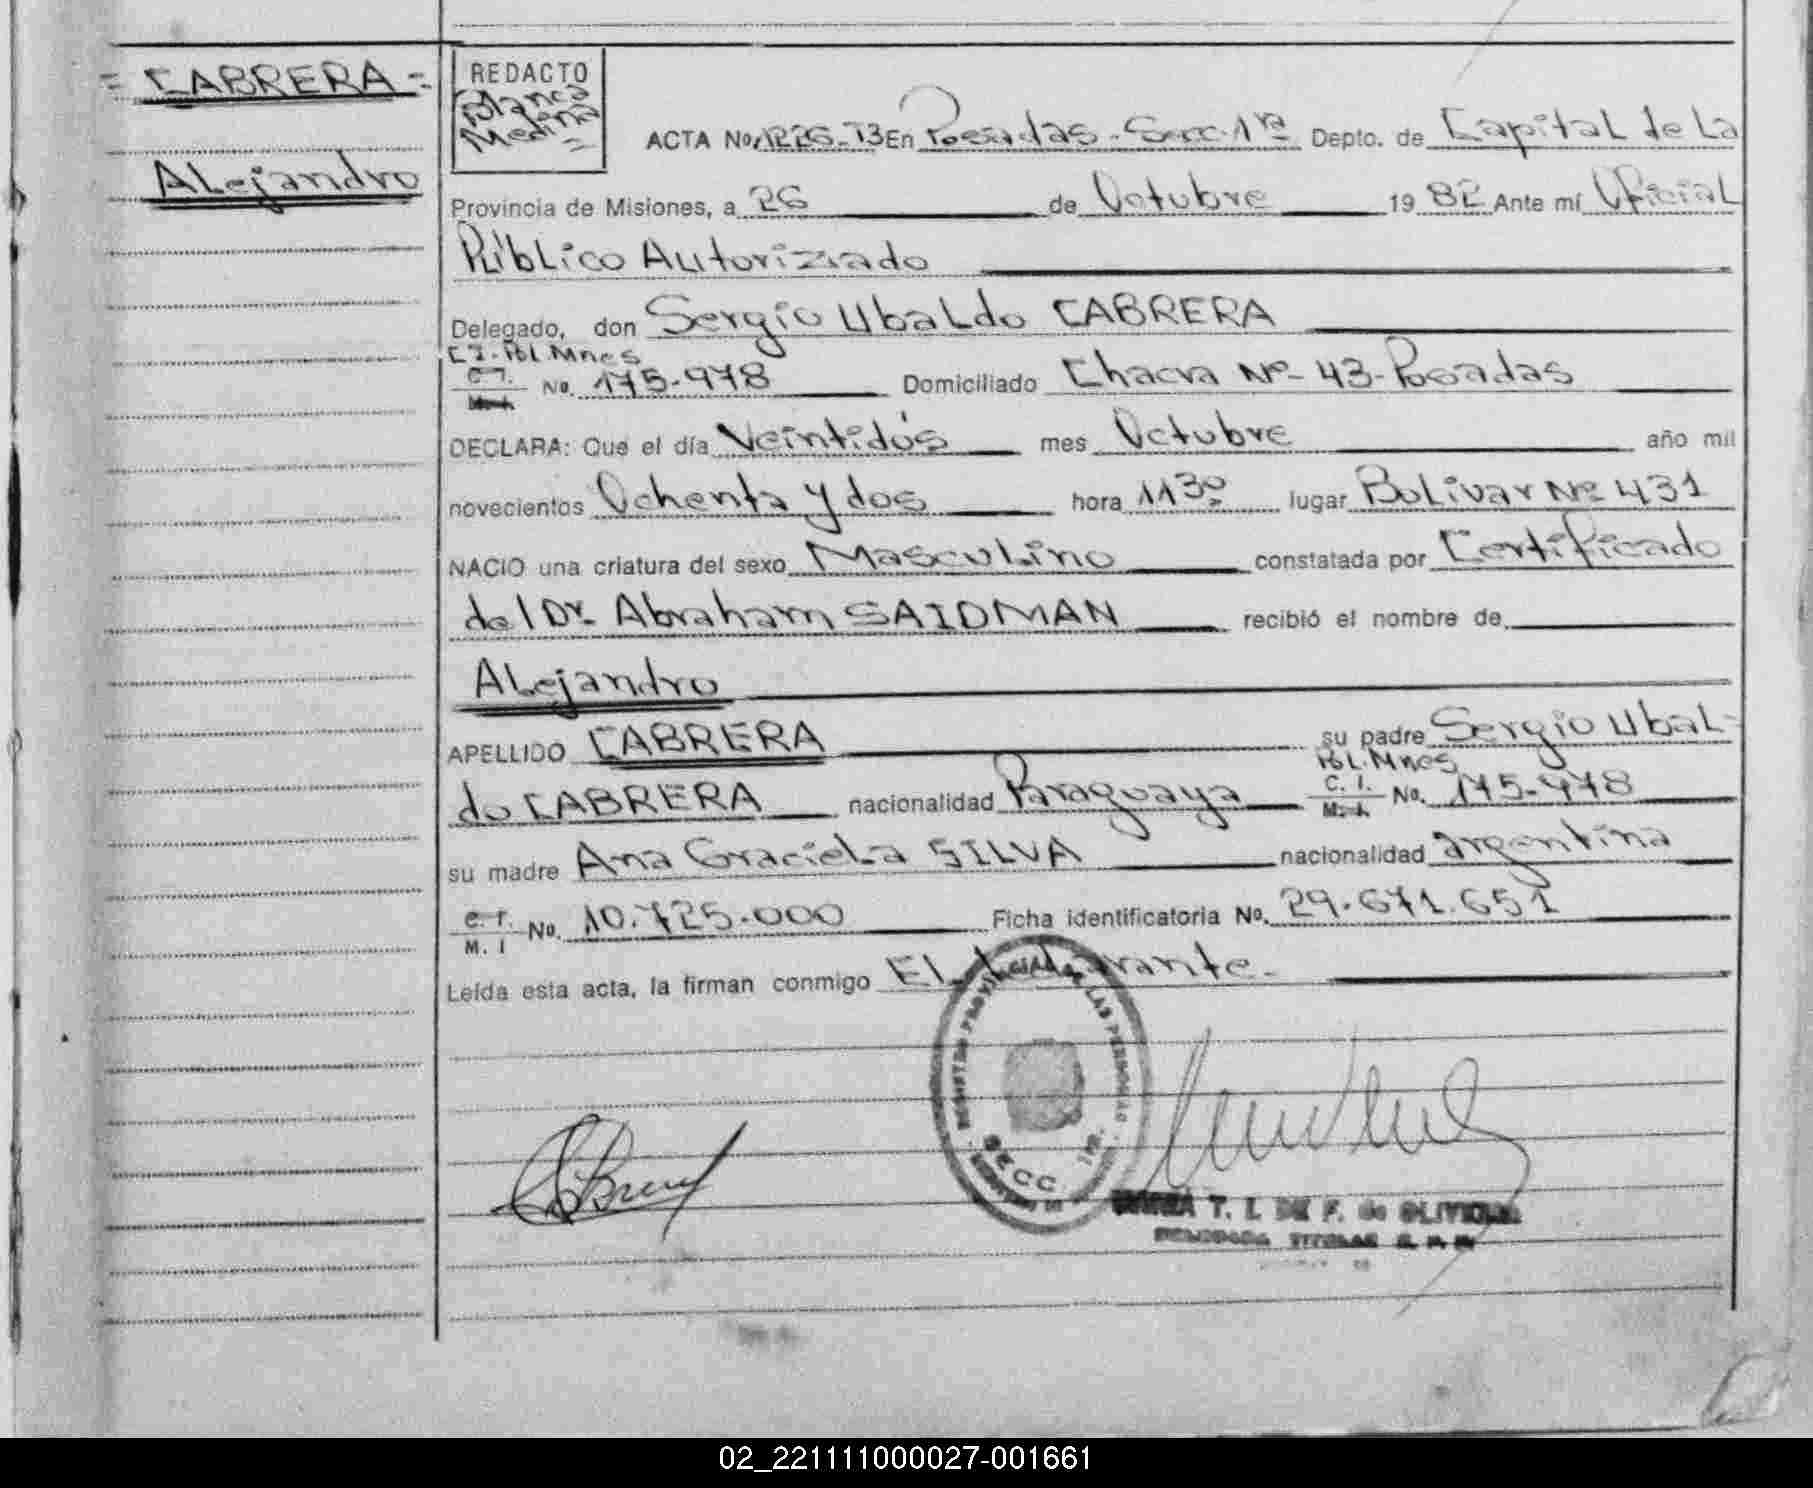 = CABRERA =
Alejandro
REDACTO
Blanca
Medina
=
ACTA No. 1226-T3 En Posadas-Secc.1ra Depto. de Capital de La
Provincia de Misiones, a 26 de Octubre 1982 Ante mí Oficial
Público Autorizado
Delegado, don Sergio Ubaldo CABRERA
C.I. Pol. Mnes
C. I. No. 175.978 Domiciliado Chacra Nº 43-Posadas
M. I.
DECLARA: Que el día Veintidós mes Octubre año mil
novecientos Ochenta y dos hora 1130 lugar Bolivar Nº 431
NACIO una criatura del sexo Masculino constatada por Certificado
del Dr. Abraham SAIDMAN recibió el nombre de
Alejandro
APELLIDO CABRERA su padre Sergio Ubal-
Pol. Mnes
do CABRERA nacionalidad Paraguaya C. I. No. 175.978
M. I.
su madre Ana Graciela SILVA nacionalidad argentina
C. I. No. 10.725.000 Ficha identificatoria No. 29.671.651
M. I
Leída esta acta, la firman conmigo El
REGISTRO PROVINCIAL DE LAS PERSONAS
SECC 1ra.
T. I. DE F. de OLIVEIRA
02_221111000027-001661